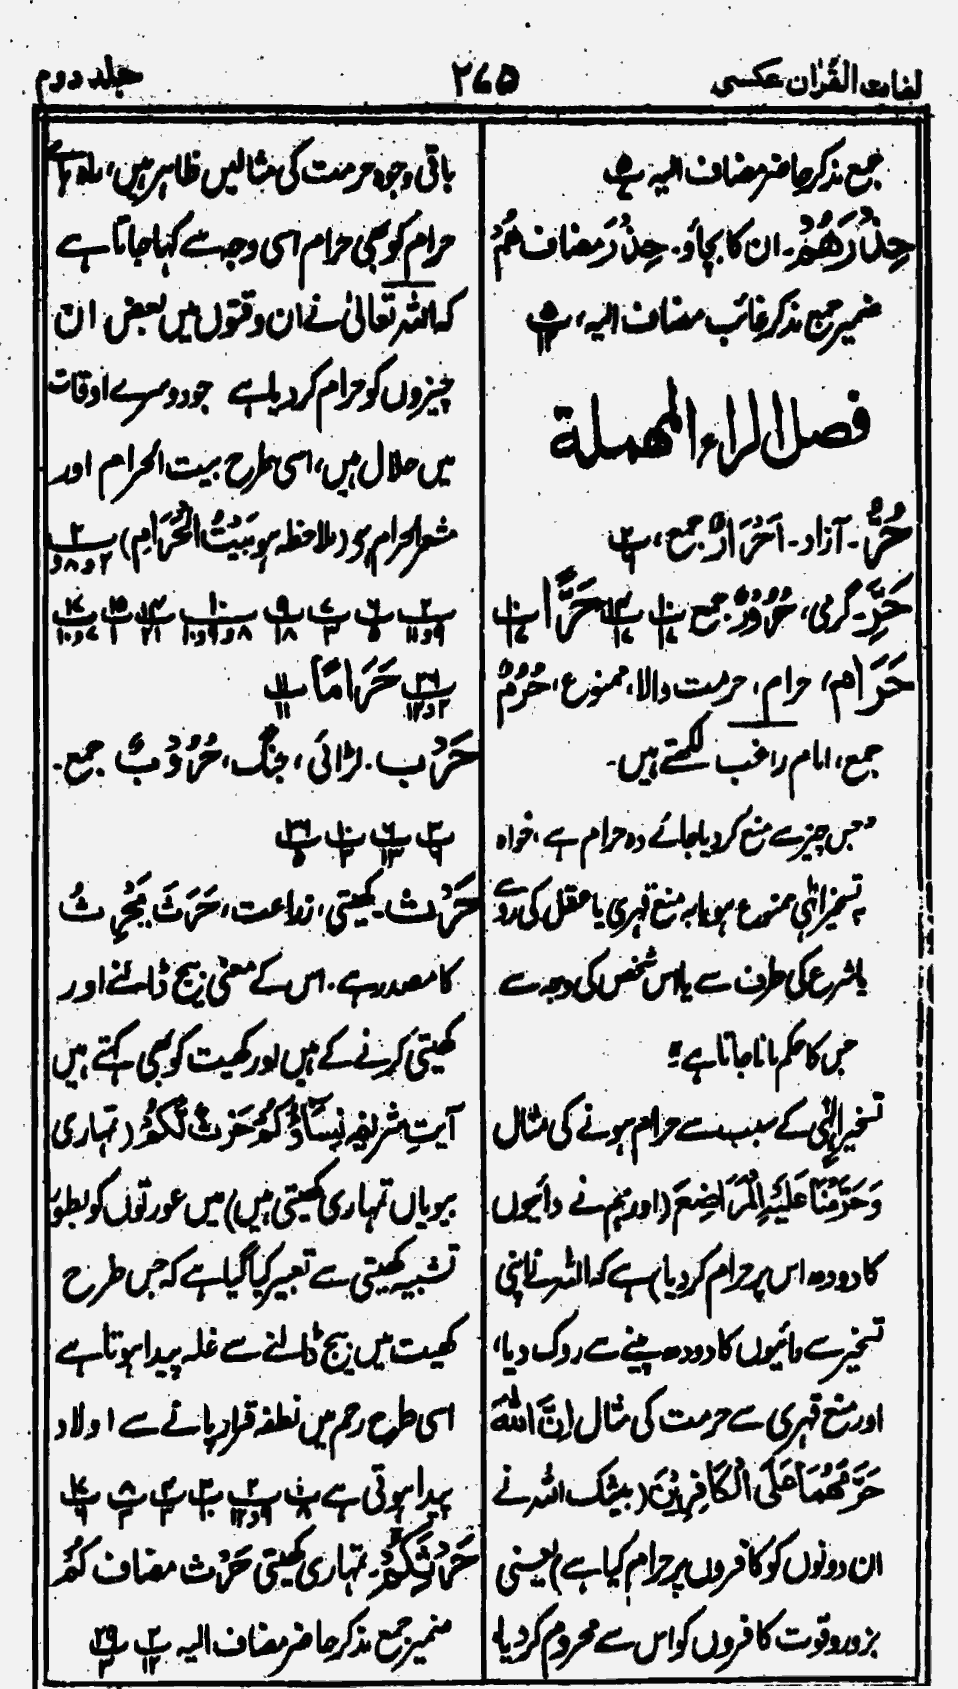 لغات القرآن عکسی
۲۷۵
جلد دوم
جمع مذکر حاضر مضاف الیہ پ
حِذْرَهُمْ۔ ان کا بچاؤ۔ حِذْرَ مضاف هُمْ
ضمیر جمع مذکر غائب مضاف الیہ، پ
فصل الراء المهملة
حُرٌّ۔ آزاد۔ اَحْرَارٌ جمع، پ
حَرٌّ۔ گرمی، حُرُوْرٌ جمع پ پ حَرًّا پ
حَرَامٌ، حرام، حرمت والا، ممنوع، حُرُمٌ
جمع، امام راغب لکھتے ہیں۔
"جس چیز سے منع کر دیا جائے وہ حرام ہے، خواہ
بہ تسخیر الٰہی ممنوع ہو یا بہ منع قہری یا عقل کی رو سے
یا شرع کی طرف سے یا اس شخص کی وجہ سے
جس کا حکم مانا جاتا ہے"
تسخیر الٰہی کے سبب سے حرام ہونے کی مثال
وَحَرَّمْنَا عَلَيْهِ الْمَرَاضِعَ (اور ہم نے دائیوں
کا دودھ اس پر حرام کر دیا) ہے کہ اللہ نے اپنی
تسخیر سے دائیوں کا دودھ پینے سے روک دیا،
اور منع قہری سے حرمت کی مثال اِنَّ اللّٰهَ
حَرَّمَهُمَا عَلَى الْكَافِرِيْنَ (بیشک اللہ نے
ان دونوں کو کافروں پر حرام کیا ہے) یعنی
بزور و قوت کافروں کو اس سے محروم کر دیا۔
باقی وجوہ حرمت کی مثالیں ظاہر ہیں، ماہ ہائے
حرام کو بھی حرام اسی وجہ سے کہا جاتا ہے
کہ اللہ تعالیٰ نے ان وقتوں میں بعض ان
چیزوں کو حرام کر دیا ہے جو دوسرے اوقات
میں حلال ہیں، اسی طرح بیت الحرام اور
مشعر الحرام ہے (ملاحظہ ہو بَيْتُ الْحَرَامِ) پ
حَرَامًا پ
حَرْب۔ لڑائی، جنگ، حُرُوْبٌ جمع۔
حَرْث۔ کھیتی، زراعت، حَرَثَ يَحْرِثُ
کا مصدر ہے۔ اس کے معنی بیج ڈالنے اور
کھیتی کرنے کے ہیں اور کھیت کو بھی کہتے ہیں
آیتِ شریفہ نِسَآؤُكُمْ حَرْثٌ لَّكُمْ (تمہاری
بیویاں تمہاری کھیتی ہیں) میں عورتوں کو بطور
تشبیہ کھیتی سے تعبیر کیا گیا ہے کہ جس طرح
کھیت میں بیج ڈالنے سے غلہ پیدا ہوتا ہے
اسی طرح رحم میں نطفہ قرار پانے سے اولاد
پیدا ہوتی ہے
حَرْثَكُمْ۔ تمہاری کھیتی حَرْث مضاف كُمْ
ضمیر جمع مذکر حاضر مضاف الیہ پ